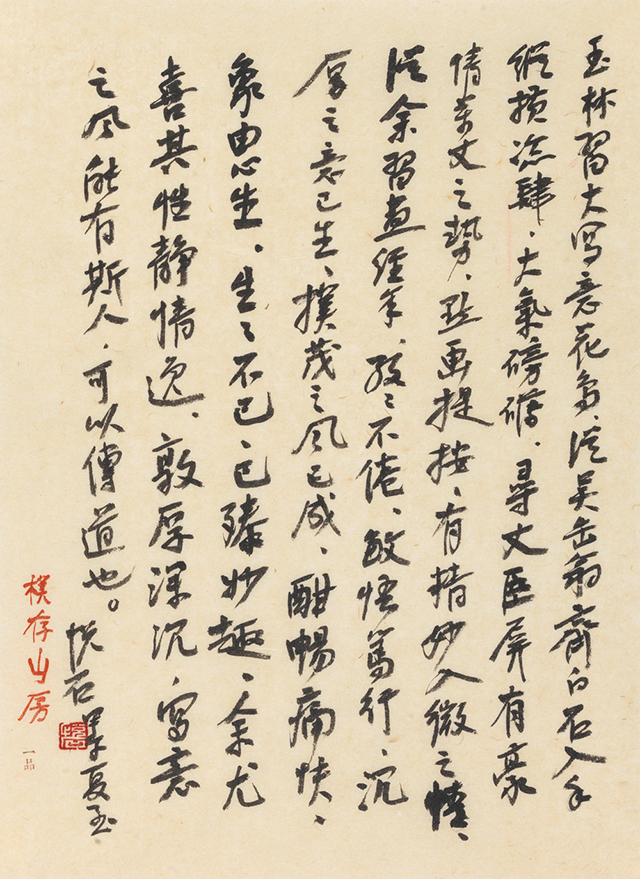 玉林習大写意花鳥、從吴缶翁齊白石入手
縱横恣肆、大氣磅礴、尋丈巨屏有豪
情萬丈之勢、點画提按、有精妙入微之情、
從余習畫經年、孜孜不倦、敏悟篤行、沉
厚之意已生、樸茂之风已成、酣暢痛快、
象由心生、生生不已、已臻妙趣、余尤
喜其性静情逸、敦厚深沉、写意
之风能有斯人、可以傳道也。
悦石 夏玉
樸存山房
一品